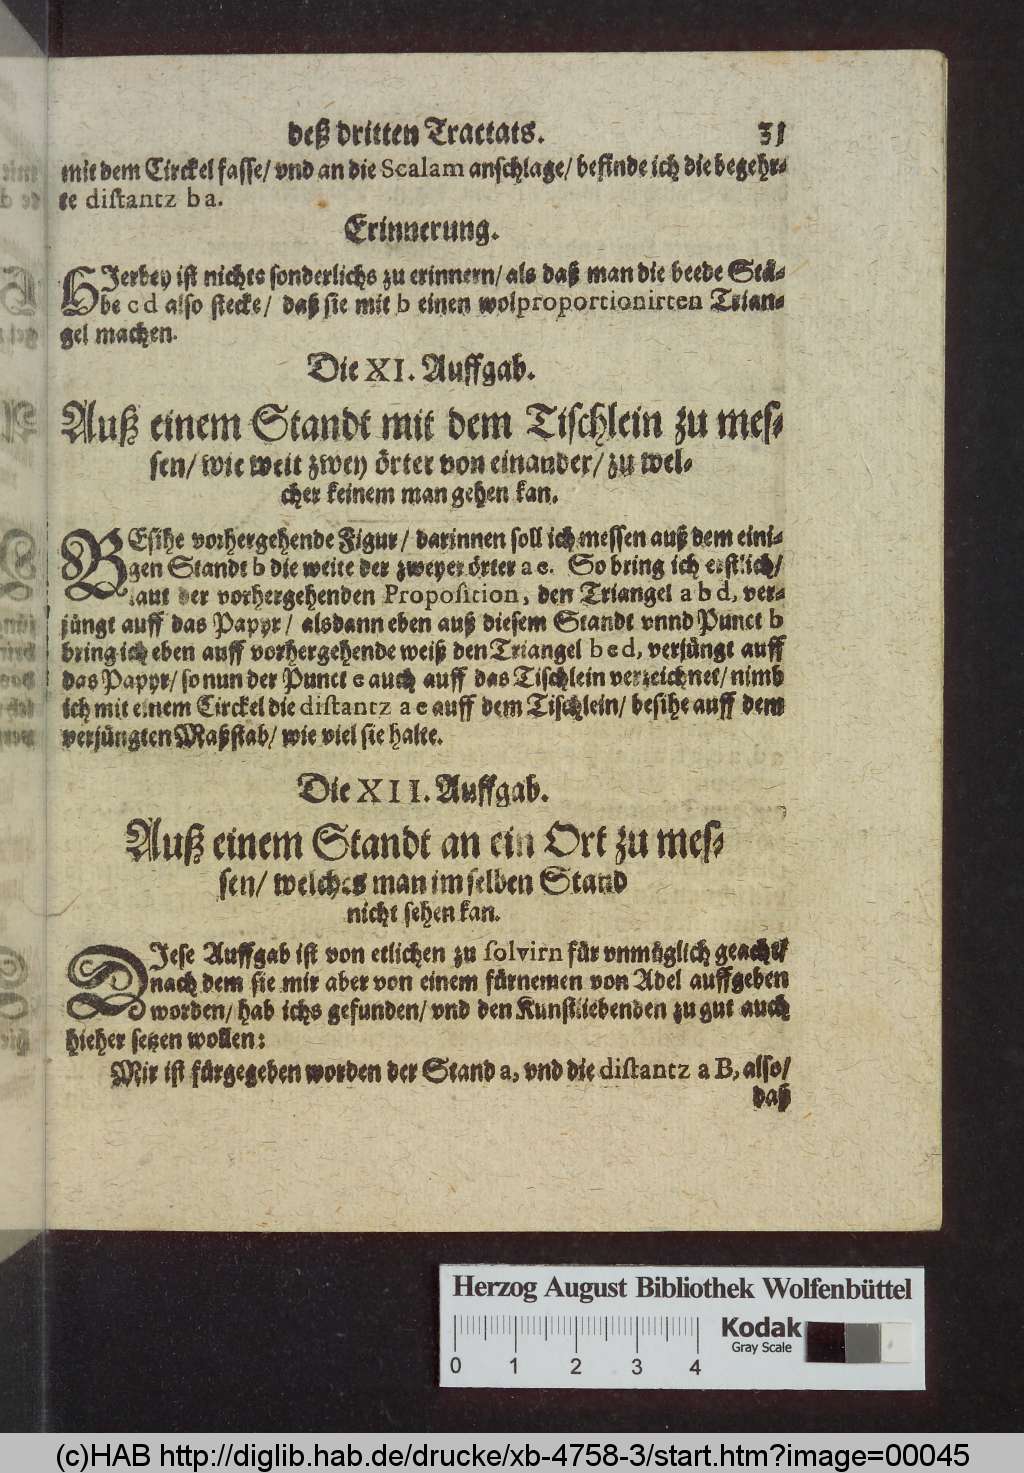 deß dritten Tractats. 31
mit dem Circkel fasse/ vnd an die Scalam anschlage/ befinde ich die begehr-
te distantz b a.
Erinnerung.
HJerbey ist nichts sonderlichs zu erinnern/ als daß man die beede Stä-
be c d also stecke/ daß sie mit b einen wolproportionirten Trian-
gel machen.
Die XI. Auffgab.
Auß einem Standt mit dem Tischlein zu mes-
sen/ wie weit zwey örter von einander/ zu wel-
cher keinem man gehen kan.
BEsihe vorhergehende Figur/ darinnen soll ich messen auß dem eini-
gen Standt b die weite der zweyer örter a e. So bring ich erstlich/
laut der vorhergehenden Proposition, den Triangel a b d, ver-
jüngt auff das Papyr/ alsdann eben auß diesem Standt vnnd Punct b
bring ich eben auff vorhergehende weiß den Triangel b e d, verjüngt auff
das Papyr/ so nun der Punct e auch auff das Tischlein verzeichnet/ nimb
ich mit einem Circkel die distantz a e auff dem Tischlein/ besihe auff dem
verjüngten Maßstab/ wie viel sie halte.
Die XII. Auffgab.
Auß einem Standt an ein Ort zu mes-
sen/ welches man im selben Stand
nicht sehen kan.
DJese Auffgab ist von etlichen zu solvirn für vnmüglich geacht/
nach dem sie mir aber von einem fürnemen von Adel auffgeben
worden/ hab ichs gefunden/ vnd den Kunstliebenden zu gut auch
hieher setzen wollen:
Mir ist fürgegeben worden der Stand a, vnd die distantz a B, also/
daß
Herzog August Bibliothek Wolfenbüttel
0 1 2 3 4
Kodak
Gray Scale
(c)HAB http://diglib.hab.de/drucke/xb-4758-3/start.htm?image=00045